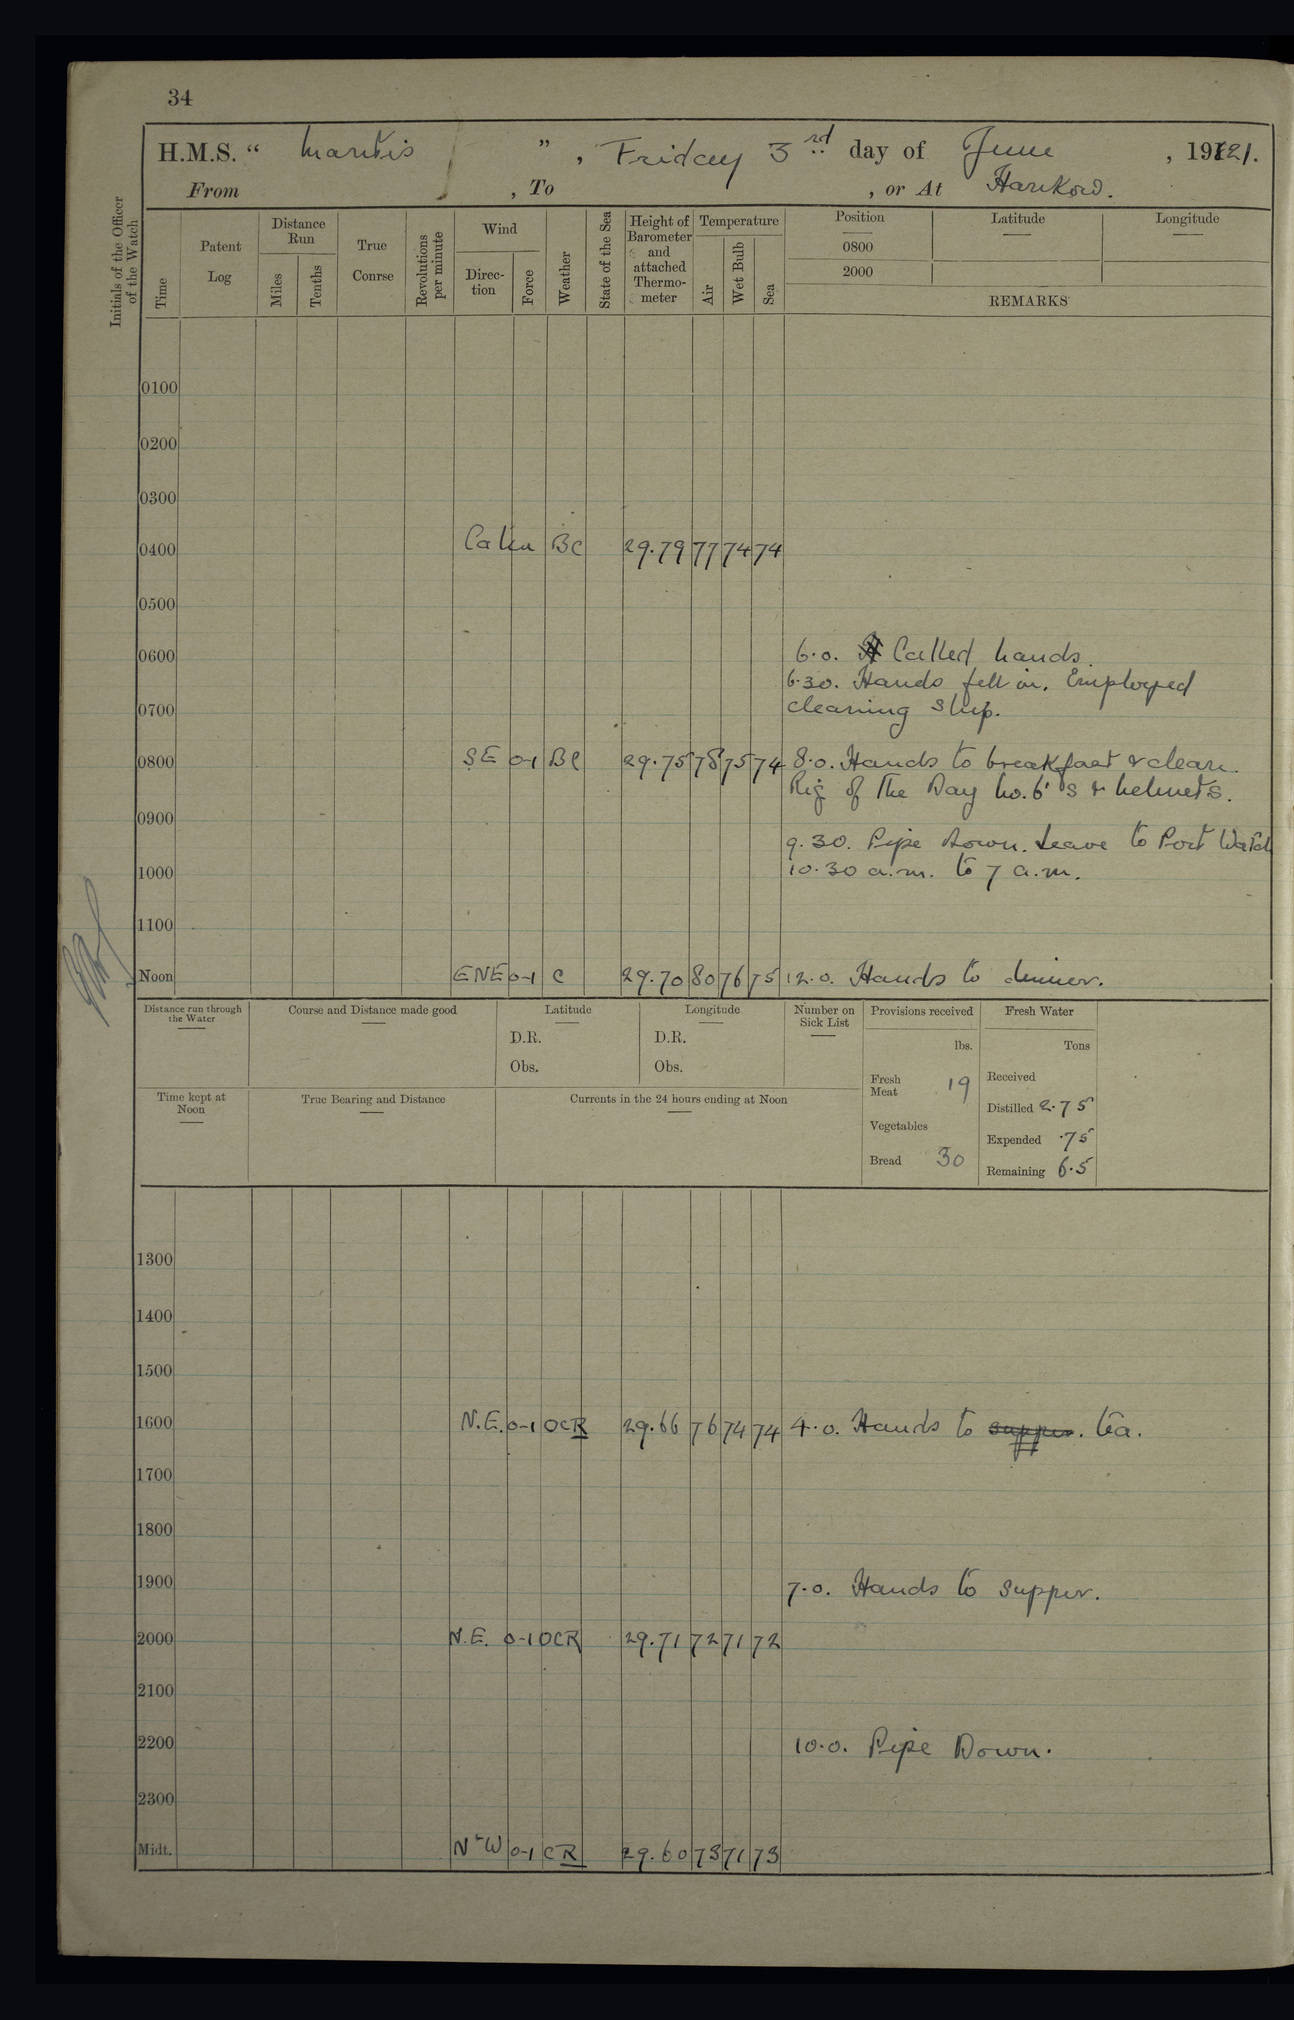 34
H.M.S. “ Mantis ” , Friday 3rd day of June , 1921.
From , To , or At Hankow.
Initials of the Officer of the Watch
Time
Patent Log
Distance Run
Miles
Tenths
True Course
Revolutions per minute
Wind
Direction
Force
Weather
State of the Sea
Height of Barometer and attached Thermometer
Temperature
Air
Wet Bulb
Sea
Position Latitude Longitude
0800
2000
REMARKS
0100
0200
0300
0400 Calm BC 29.79 77 74 74
0500
0600 6.0. Called hands.
6.30. Hands fell in. Employed
0700 cleaning ship.
0800 SE 0-1 BC 29.75 78 75 74 8.0. Hands to breakfast & clean.
Rig of The Day No. 6's & helmets.
0900
9.30. Pipe Down. Leave to Port Watch
1000 10.30 a.m. to 7 a.m.
1100
Noon ENE 0-1 C 29.70 80 76 75 12.0. Hands to dinner.
Distance run through the Water
Course and Distance made good
Latitude
D.R.
Obs.
Longitude
D.R.
Obs.
Number on Sick List
Provisions received
lbs.
Fresh Meat 19
Vegetables
Bread 30
Fresh Water
Tons
Received
Distilled 2.75
Expended .75
Remaining 6.5
Time kept at Noon
True Bearing and Distance
Currents in the 24 hours ending at Noon
1300
1400
1500
1600 N.E. 0-1 OCR 29.66 76 74 74 4.0. Hands to supper. tea.
1700
1800
1900 7.0. Hands to supper.
2000 N.E. 0-1 OCR 29.71 72 71 72
2100
2200 10.0. Pipe Down.
2300
Midt. N'W 0-1 CR 29.60 73 71 73